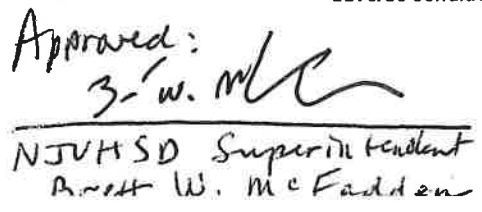 Approved:
NJUHSD Superintendent
Brett W. McFadden